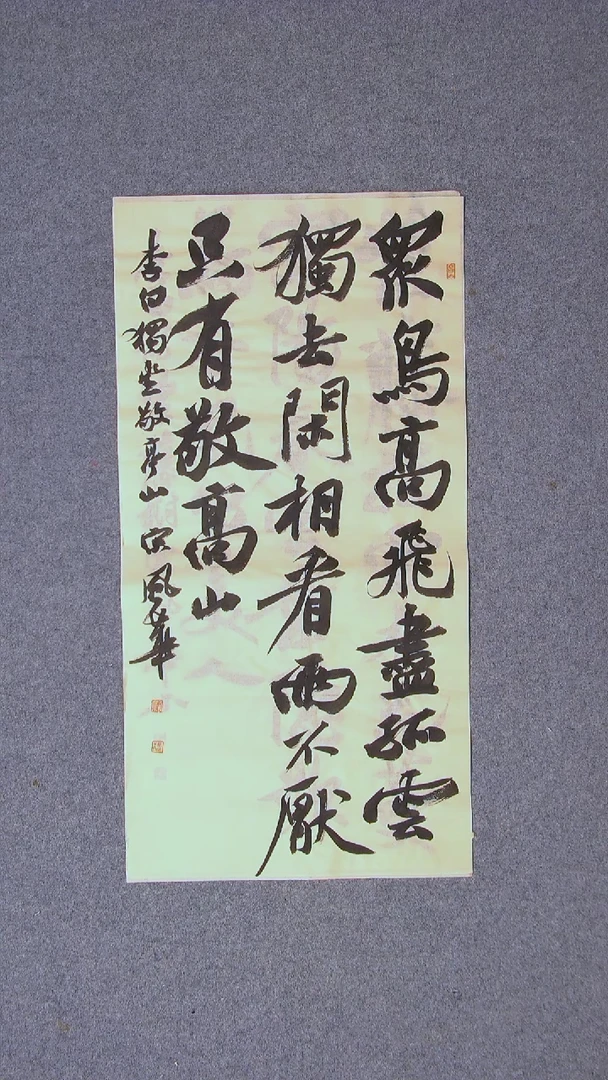 眾鳥高飛盡孤雲
獨去閑相看兩不厭
只有敬高山
李白獨坐敬亭山 宋風華